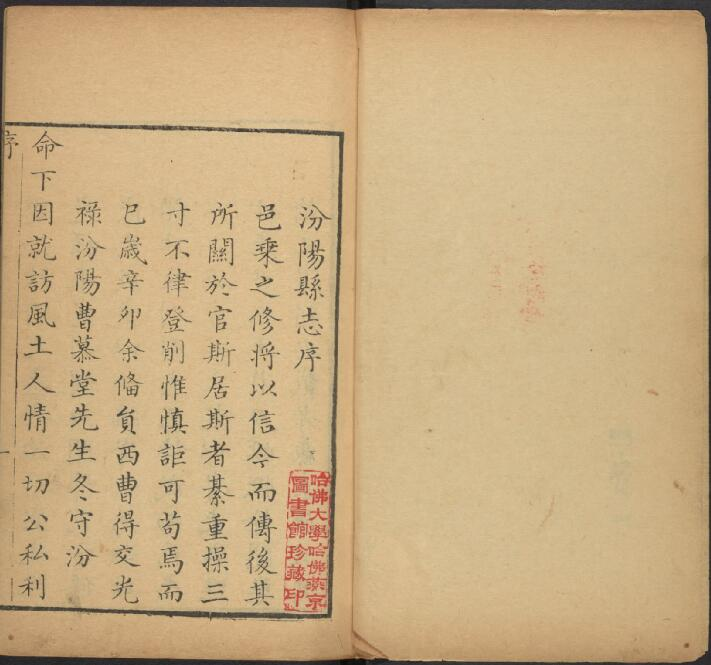 汾陽縣志序
邑乗之修將以信今而傳後其
所關於官斯居斯者綦重操三
寸不律登削惟慎詎可苟焉而
已歲辛卯余俻員西曹得交光
祿汾陽曹慕堂先生冬守汾
命下因就訪風土人情一切公私利
序
一
哈佛大學哈佛燕京
圖書館珍藏印